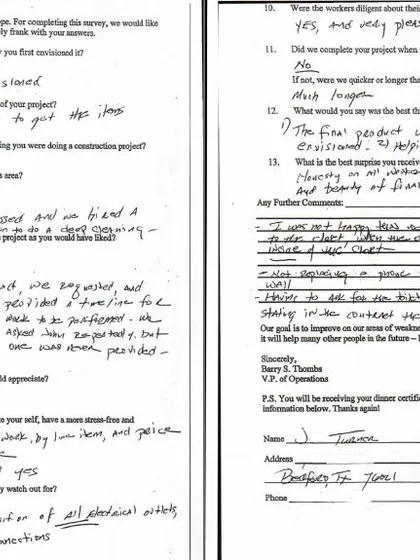 pe. For completing this survey, we would like
ly frank with your answers.
y you first envisioned it?
sioned
of your project?
to get the items
ing you were doing a construction project?
s area?
ssed and we hired a
to do a deep cleaning -
project as you would have liked?
we requested, and
provided a timeline for
work to be performed - we
asked John repeatedly, but
one was never provided -
ld appreciate?
to your self, have a more stress-free and
work, by line item, and price
yes
y watch out for?
of all electrical outlets,
nnections
10. Were the workers diligent about thei
Yes, and very pleas
11. Did we complete your project when
No
If not, were we quicker or longer tha
Much longer
12. What would you say was the best thi
1) The final product w
envisioned - 2) Helpi
13. What is the best surprise you receive
Honesty on all
and beauty of final
Any Further Comments:
- I was not happy
to the client when the c
- Not replacing a phone
wall
- Having to ask for the
stating in the contract the
Our goal is to improve on our areas of weakne
it will help many other people in the future – I
Sincerely,
Barry S. Thombs
V.P. of Operations
P.S. You will be receiving your dinner certific
information below. Thanks again!
Name J. Turner
Address
Bedford, TX 76021
Phone